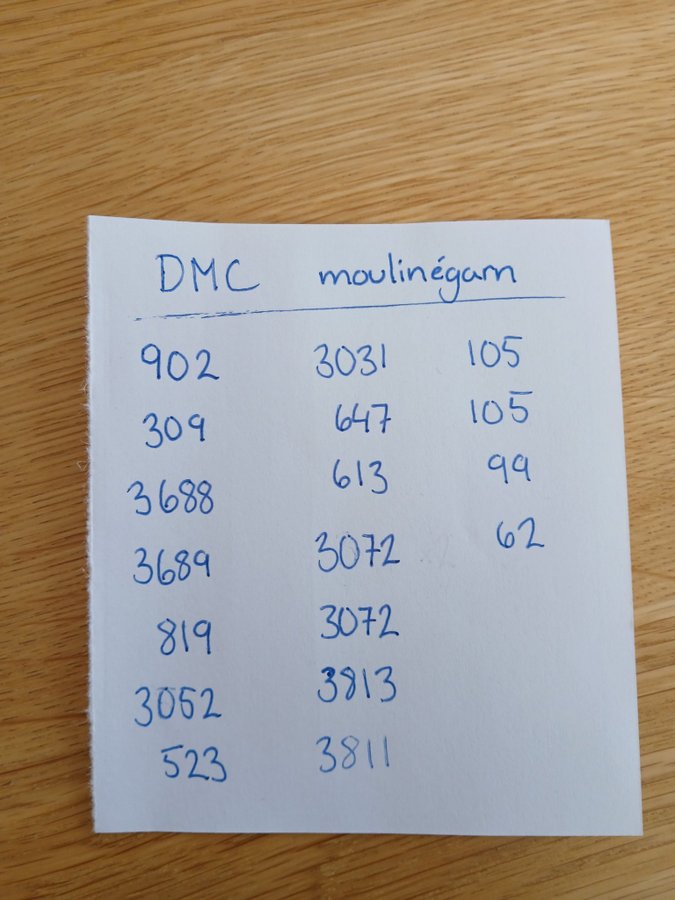 DMC moulinégarn
902 3031 105
309 647 105
3688 613 99
3689 3072 62
819 3072
3052 3813
523 3811